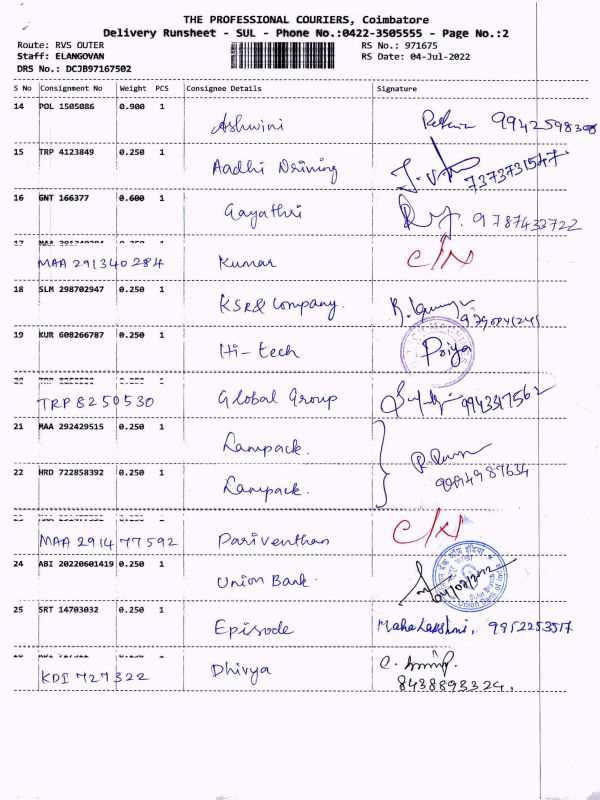 THE PROFESSIONAL COURIERS, Coimbatore
Delivery Runsheet - SUL - Phone No.:0422-3505555 - Page No.:2
Route: RVS OUTER RS No.: 971675
Staff: ELANGOVAN RS Date: 04-Jul-2022
DRS No.: DCJB97167502
S No Consignment No Weight PCS Consignee Details Signature
14 POL 1505086 0.900 1
Ashwini 9942598308
15 TRP 4123849 0.250 1
Aadhi Driving 7373731547
16 GNT 166377 0.600 1
Gayathri 9787433722
17
MAA 291340284 Kumar C/N
18 SLM 298702947 0.250 1
KSR& Company.
19 KUR 608266787 0.250 1
Hi-tech Priya
TRP 8250530 Global Group 9943347562
21 MAA 292429515 0.250 1
Lampack.
22 HRD 722858392 0.250 1
Lampack.
MAA 2914 77592 Pariventhan C/N
24 ABI 20220601419 0.250 1
Union Bank. 04/07/2022
25 SRT 14703032 0.250 1
Episode Maha Lakshmi, 9952253517
KDI 727322 Dhivya
8438893324.